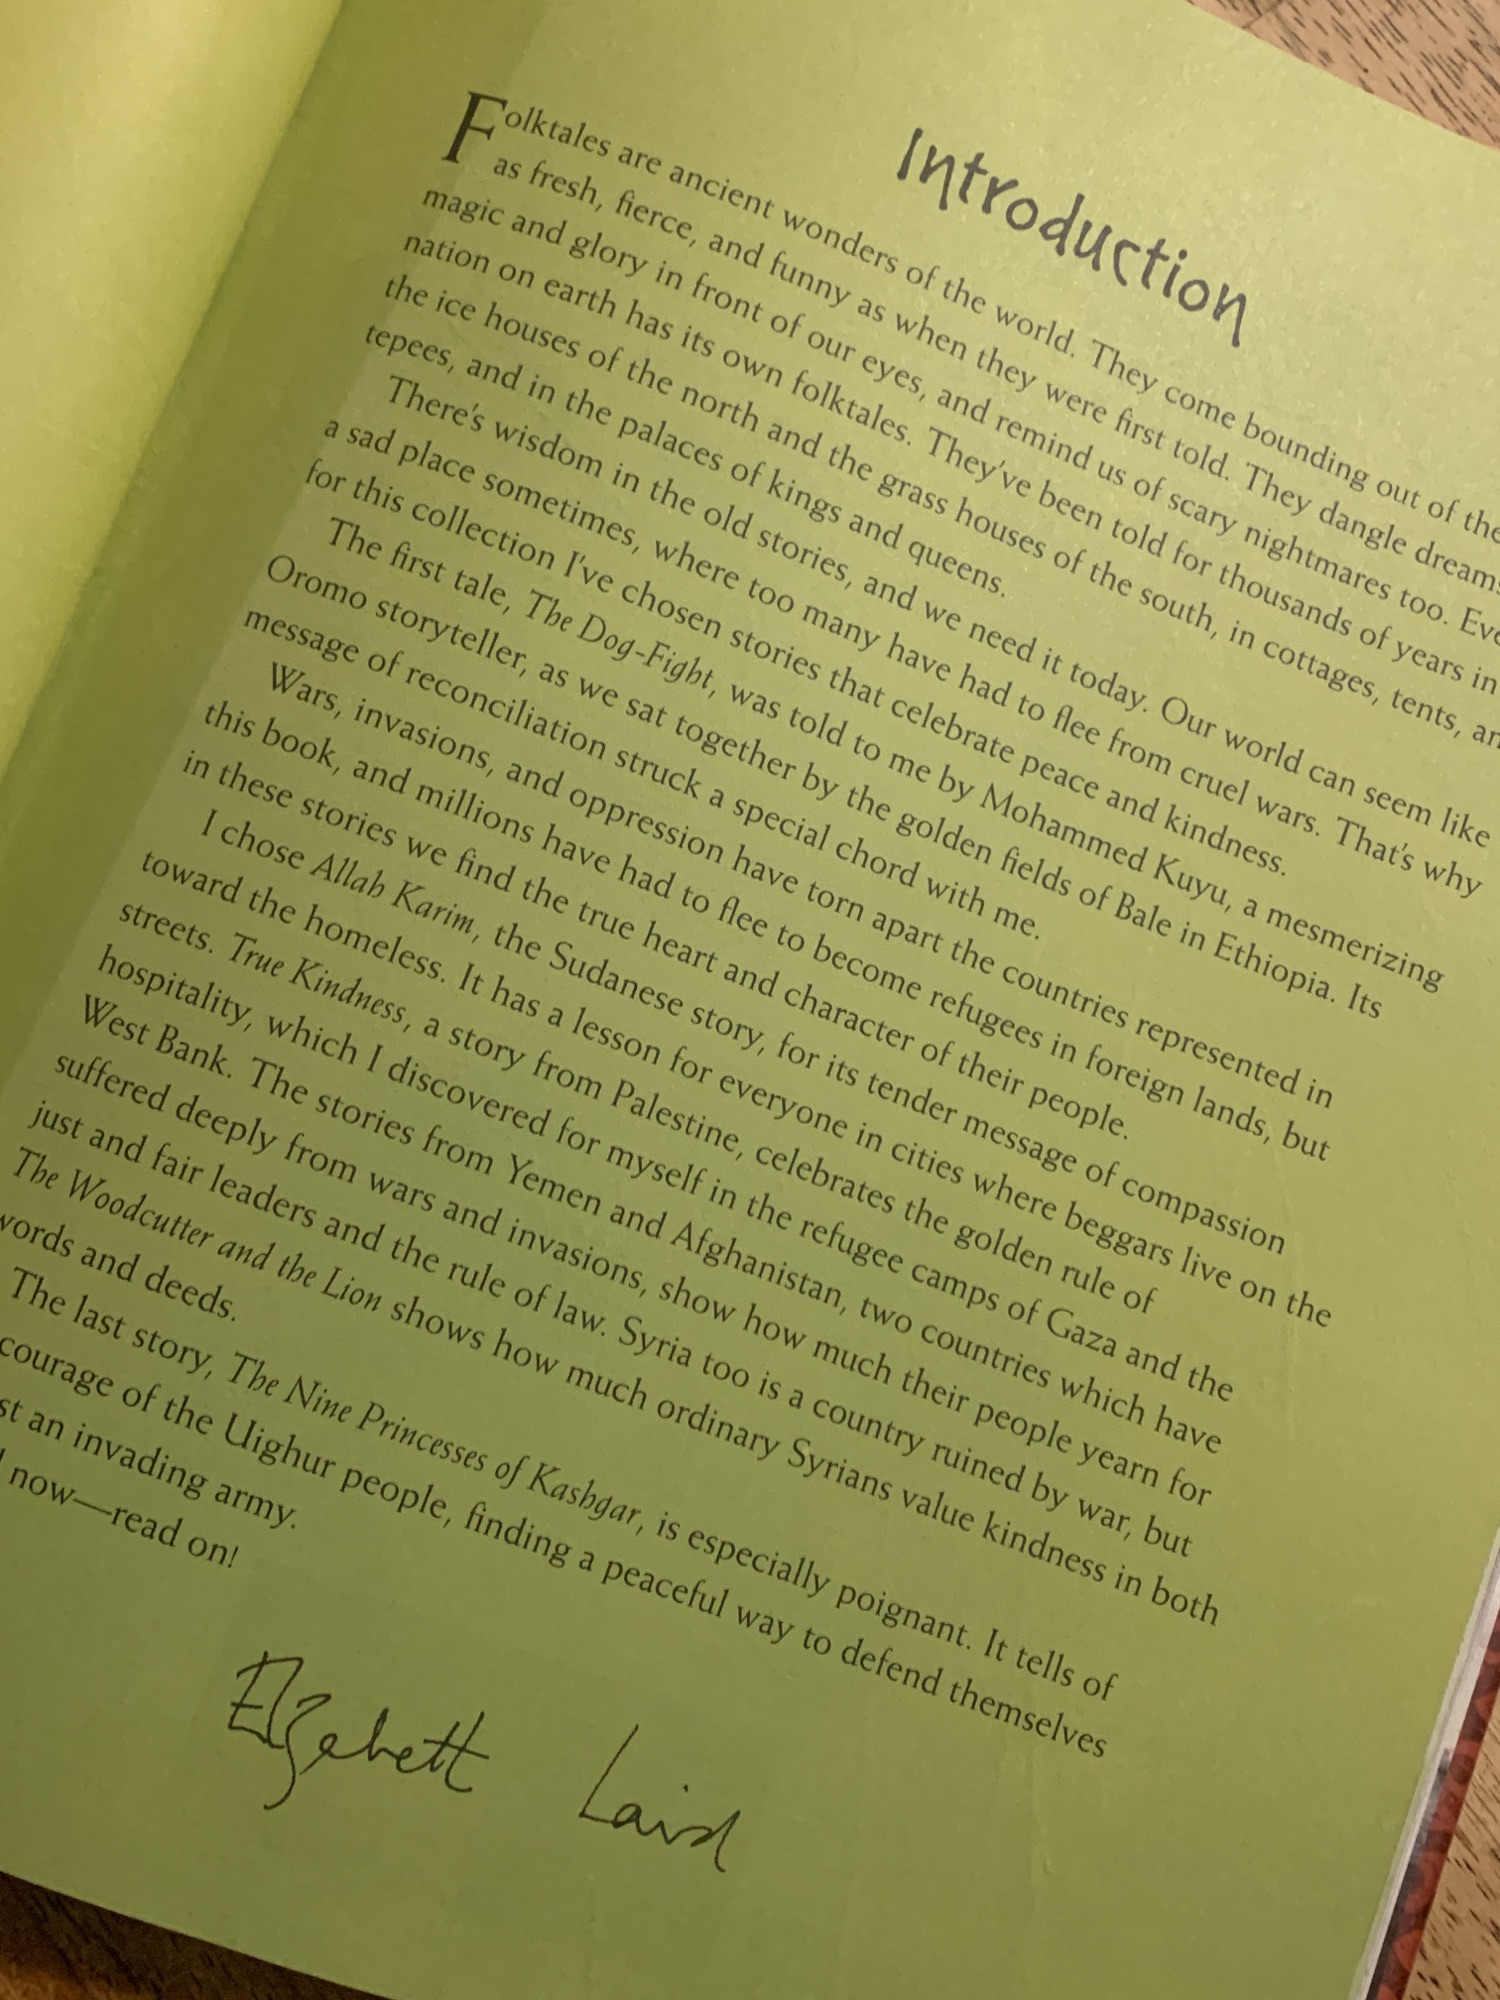 Introduction
Folktales are ancient wonders of the world. They come bounding out of the
as fresh, fierce, and funny as when they were first told. They dangle dreams
magic and glory in front of our eyes, and remind us of scary nightmares too. Eve
nation on earth has its own folktales. They've been told for thousands of years in
the ice houses of the north and the grass houses of the south, in cottages, tents, an
tepees, and in the palaces of kings and queens.
There's wisdom in the old stories, and we need it today. Our world can seem like
a sad place sometimes, where too many have had to flee from cruel wars. That's why
for this collection I've chosen stories that celebrate peace and kindness.
The first tale, The Dog-Fight, was told to me by Mohammed Kuyu, a mesmerizing
Oromo storyteller, as we sat together by the golden fields of Bale in Ethiopia. Its
message of reconciliation struck a special chord with me.
Wars, invasions, and oppression have torn apart the countries represented in
this book, and millions have had to flee to become refugees in foreign lands, but
in these stories we find the true heart and character of their people.
I chose Allah Karim, the Sudanese story, for its tender message of compassion
toward the homeless. It has a lesson for everyone in cities where beggars live on the
streets. True Kindness, a story from Palestine, celebrates the golden rule of
hospitality, which I discovered for myself in the refugee camps of Gaza and the
West Bank. The stories from Yemen and Afghanistan, two countries which have
suffered deeply from wars and invasions, show how much their people yearn for
just and fair leaders and the rule of law. Syria too is a country ruined by war, but
The Woodcutter and the Lion shows how much ordinary Syrians value kindness in both
words and deeds.
The last story, The Nine Princesses of Kashgar, is especially poignant. It tells of
courage of the Uighur people, finding a peaceful way to defend themselves
st an invading army.
now—read on!
Elizabeth Laird